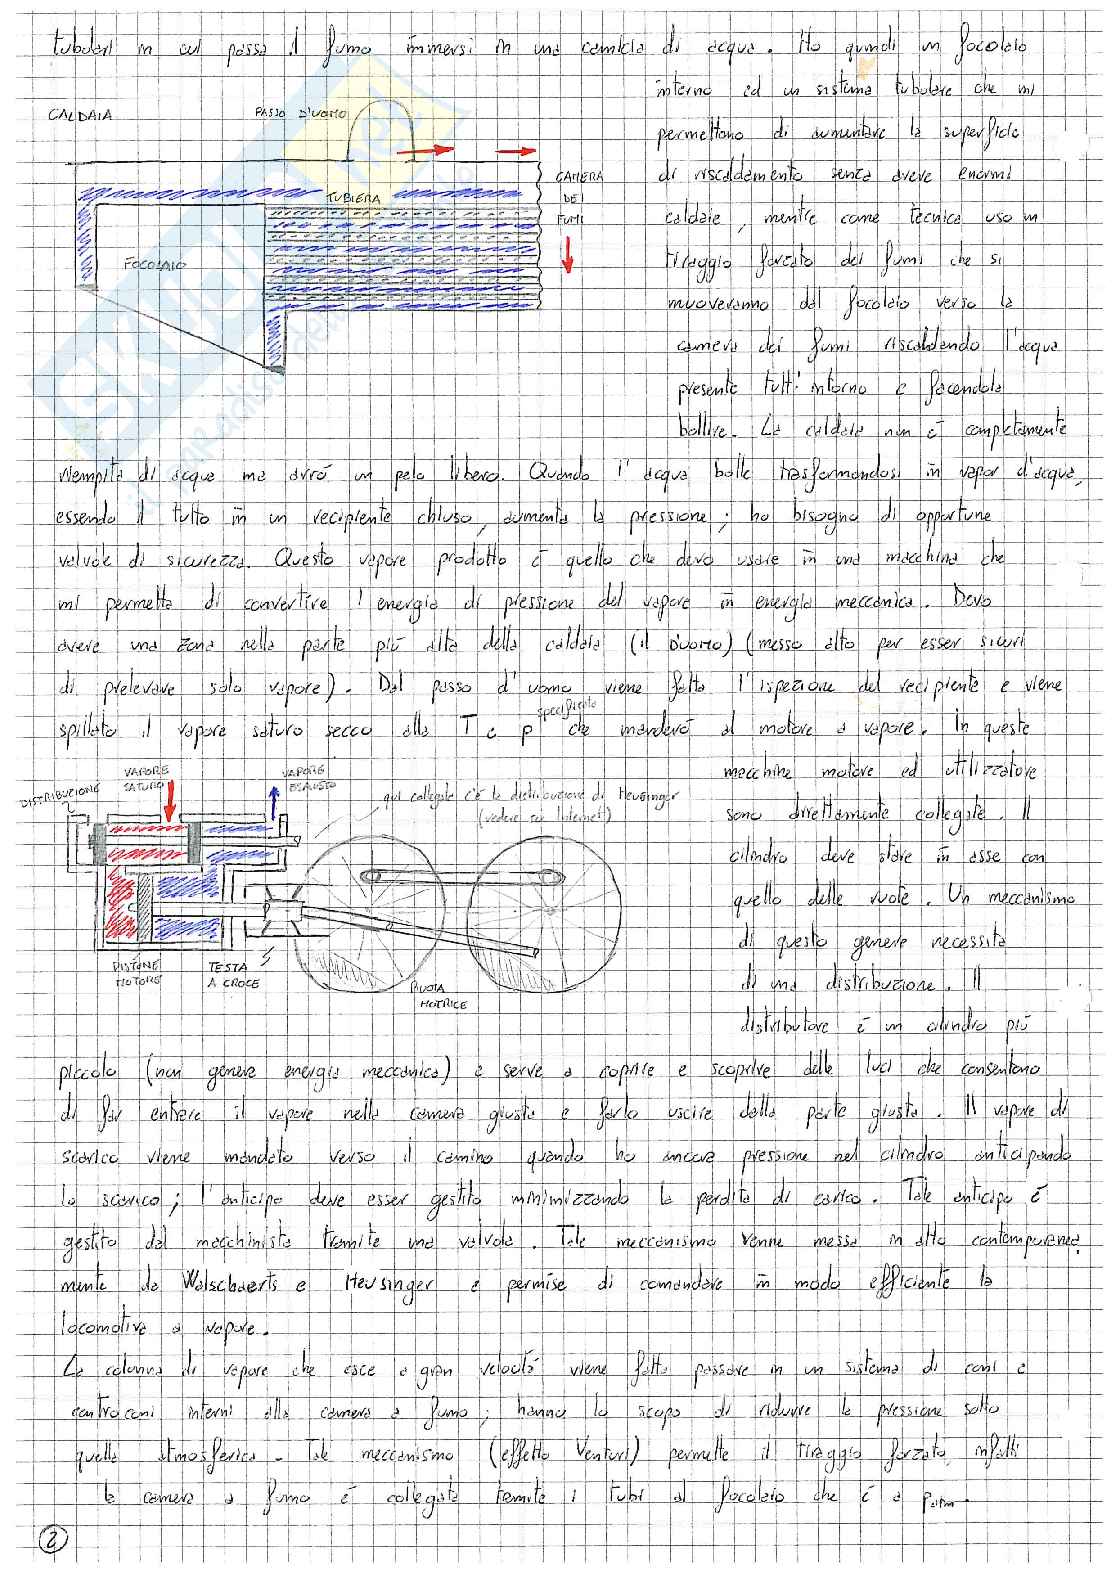 tubolari in cui passa il fumo immersi in una camicia di acqua. Ho quindi un focolaio
interno ed un sistema tubolare che mi
CALDAIA
PASSO D'UOMO
permettono di aumentare la superficie
di riscaldamento senza avere enormi
CAMERA
DEI
FUMI
TUBIERA
caldaie, mentre come tecnica uso un
FOCOLAIO
tiraggio forzato dei fumi che si
muoveranno dal focolaio verso la
camera dei fumi riscaldando l'acqua
presente tutt'intorno e facendola
bollire. La caldaia non è completamente
riempita di acqua ma avrò un pelo libero. Quando l'acqua bolle trasformandosi in vapor d'acqua,
essendo il tutto in un recipiente chiuso, aumenta la pressione; ho bisogno di opportune
valvole di sicurezza. Questo vapore prodotto è quello che devo usare in una macchina che
mi permetta di convertire l'energia di pressione del vapore in energia meccanica. Devo
avere una zona nella parte più alta della caldaia (il DUOMO) (messo alto per esser sicuri
di prelevare solo vapore). Dal passo d'uomo viene fatta l'ispezione del recipiente e viene
spillato il vapore saturo secco alla T e p specificata che manderò al motore a vapore. In queste
macchine motore ed utilizzatore
VAPORE
SATURO
VAPORE
ESAUSTO
DISTRIBUZIONE
qui collegata c'è la distribuzione di Heusinger
(vedere su Internet)
sono direttamente collegate. Il
cilindro deve stare in asse con
quello delle ruote. Un meccanismo
di questo genere necessita
PISTONE
MOTORE
TESTA
A CROCE
RUOTA
MOTRICE
di una distribuzione. Il
distributore è un cilindro più
piccolo (non genera energia meccanica) e serve a coprire e scoprire delle luci che consentono
di far entrare il vapore nella camera giusta e farlo uscire dalla parte giusta. Il vapore di
scarico viene mandato verso il camino quando ho ancora pressione nel cilindro anticipando
lo scarico; l'anticipo deve esser gestito minimizzando la perdita di carico. Tale anticipo è
gestito dal macchinista tramite una valvola. Tale meccanismo venne messo in atto contemporanea
mente da Walschaerts e Heusinger e permise di comandare in modo efficiente la
locomotiva a vapore.
La colonna di vapore che esce a gran velocità viene fatta passare in un sistema di coni e
controconi interni alla camera a fumo; hanno lo scopo di ridurre la pressione sotto
quella atmosferica. Tale meccanismo (effetto Venturi) permette il tiraggio forzato, infatti
la camera a fumo è collegata tramite i tubi al focolaio che è a patm.
2